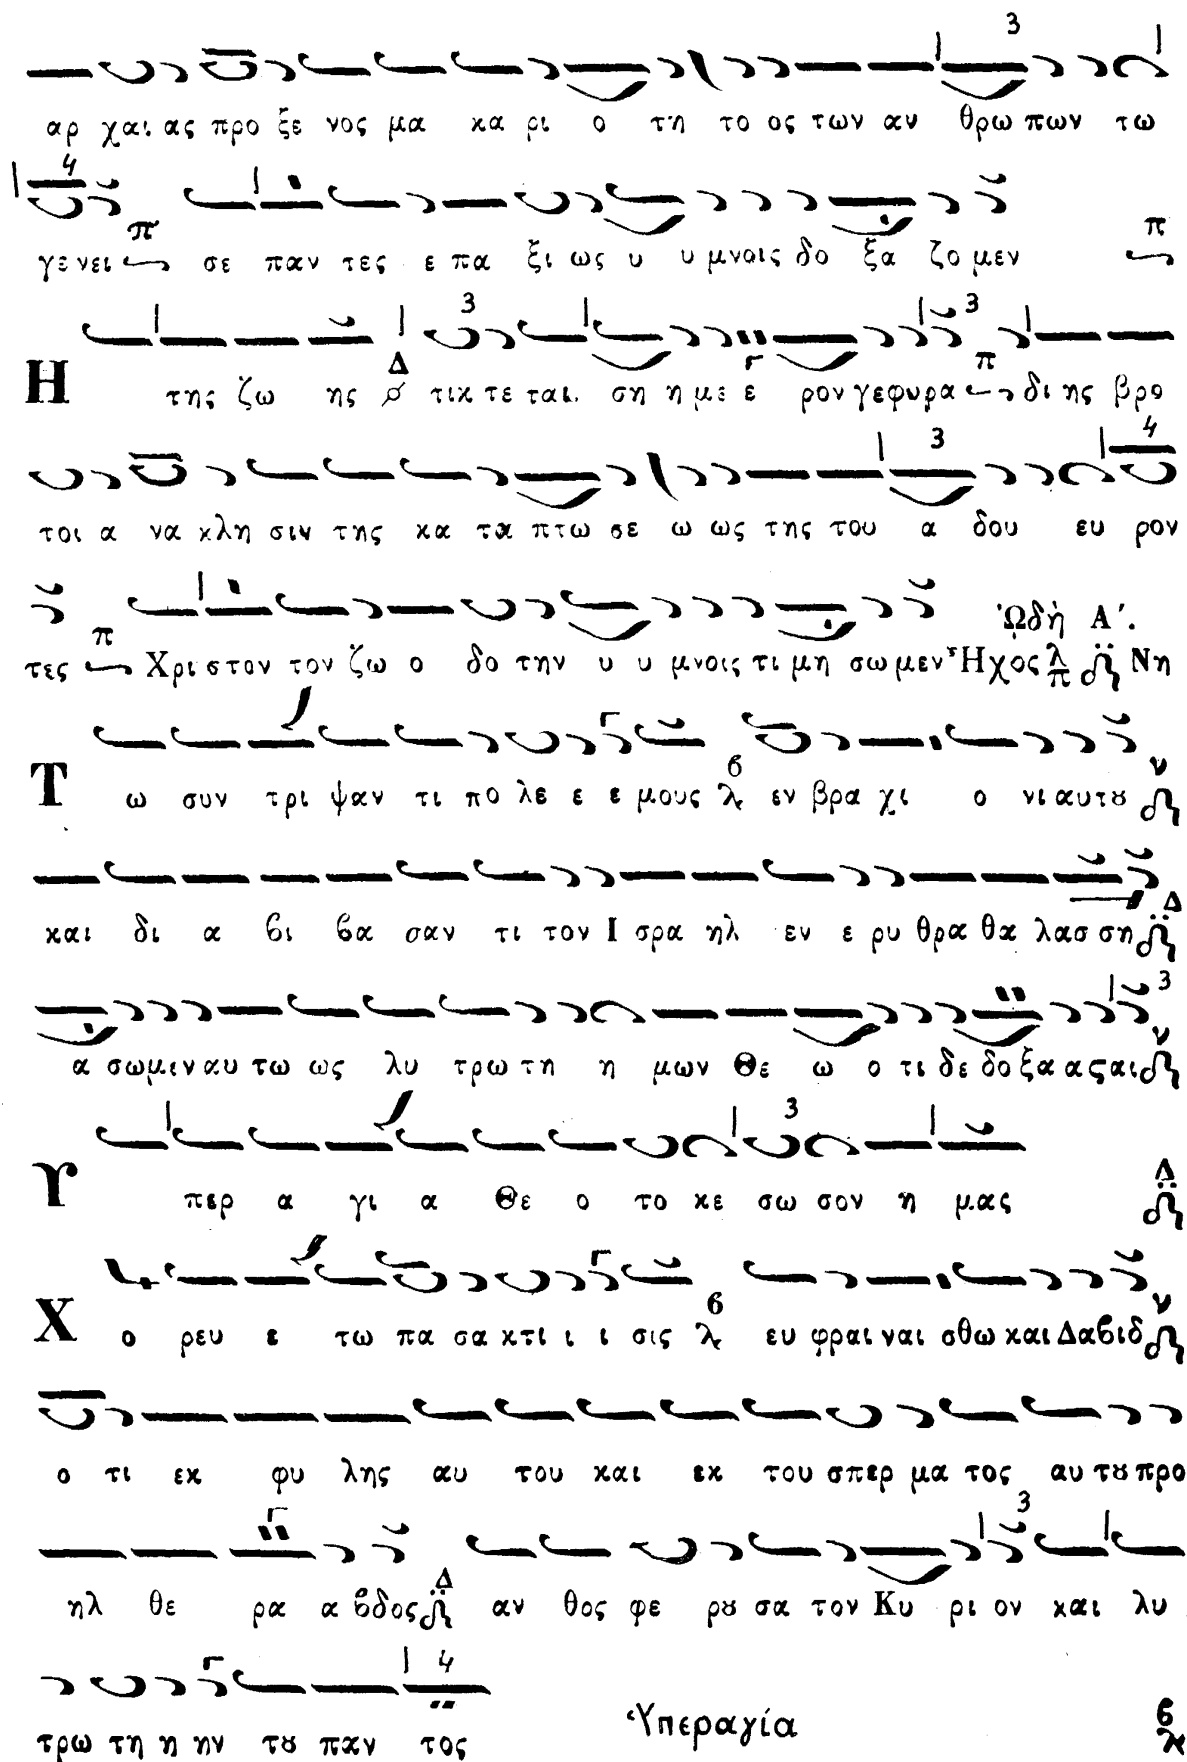 αρ χαι ας προ ξε νος μα κα ρι ο τη το ος των αν θρω πων τω
γε νει σε παν τες ε πα ξι ως υ υ μνοις δο ξα ζο μεν
Η της ζω ης τικ τε ται ση η με ε ρον γεφυρα δι ης βρο
τοι α να κλη σιν της κα τα πτω σε ω ως της του α δου ευ ρον
Ὠδὴ Α΄.
τες Χρι στον τον ζω ο δο την υ υ μνοις τι μη σω μεν Ἦχος λ π Νη
Τ ω συν τρι ψαν τι πο λε ε ε μους εν βρα χι ο νι αυτȣ
και δι α βι βα σαν τι τον Ι σρα ηλ εν ε ρυ θρα θα λασ ση
α σωμεν αυ τω ως λυ τρω τη η μων Θε ω ο τι δε δο ξα ας αι
ϒ περ α γι α Θε ο το κε σω σον η μας
Χ ο ρευ ε τω πα σα κτι ι ι σις ευ φραι ναι σθω και Δαβιδ
ο τι εκ φυ λης αυ του και εκ του σπερ μα τος αυ τȣ προ
ηλ θε ρα α βδος αν θος φε ρȣ σα τον Κυ ρι ον και λυ
τρω τη η ην τȣ παν τος Ὑπεραγία